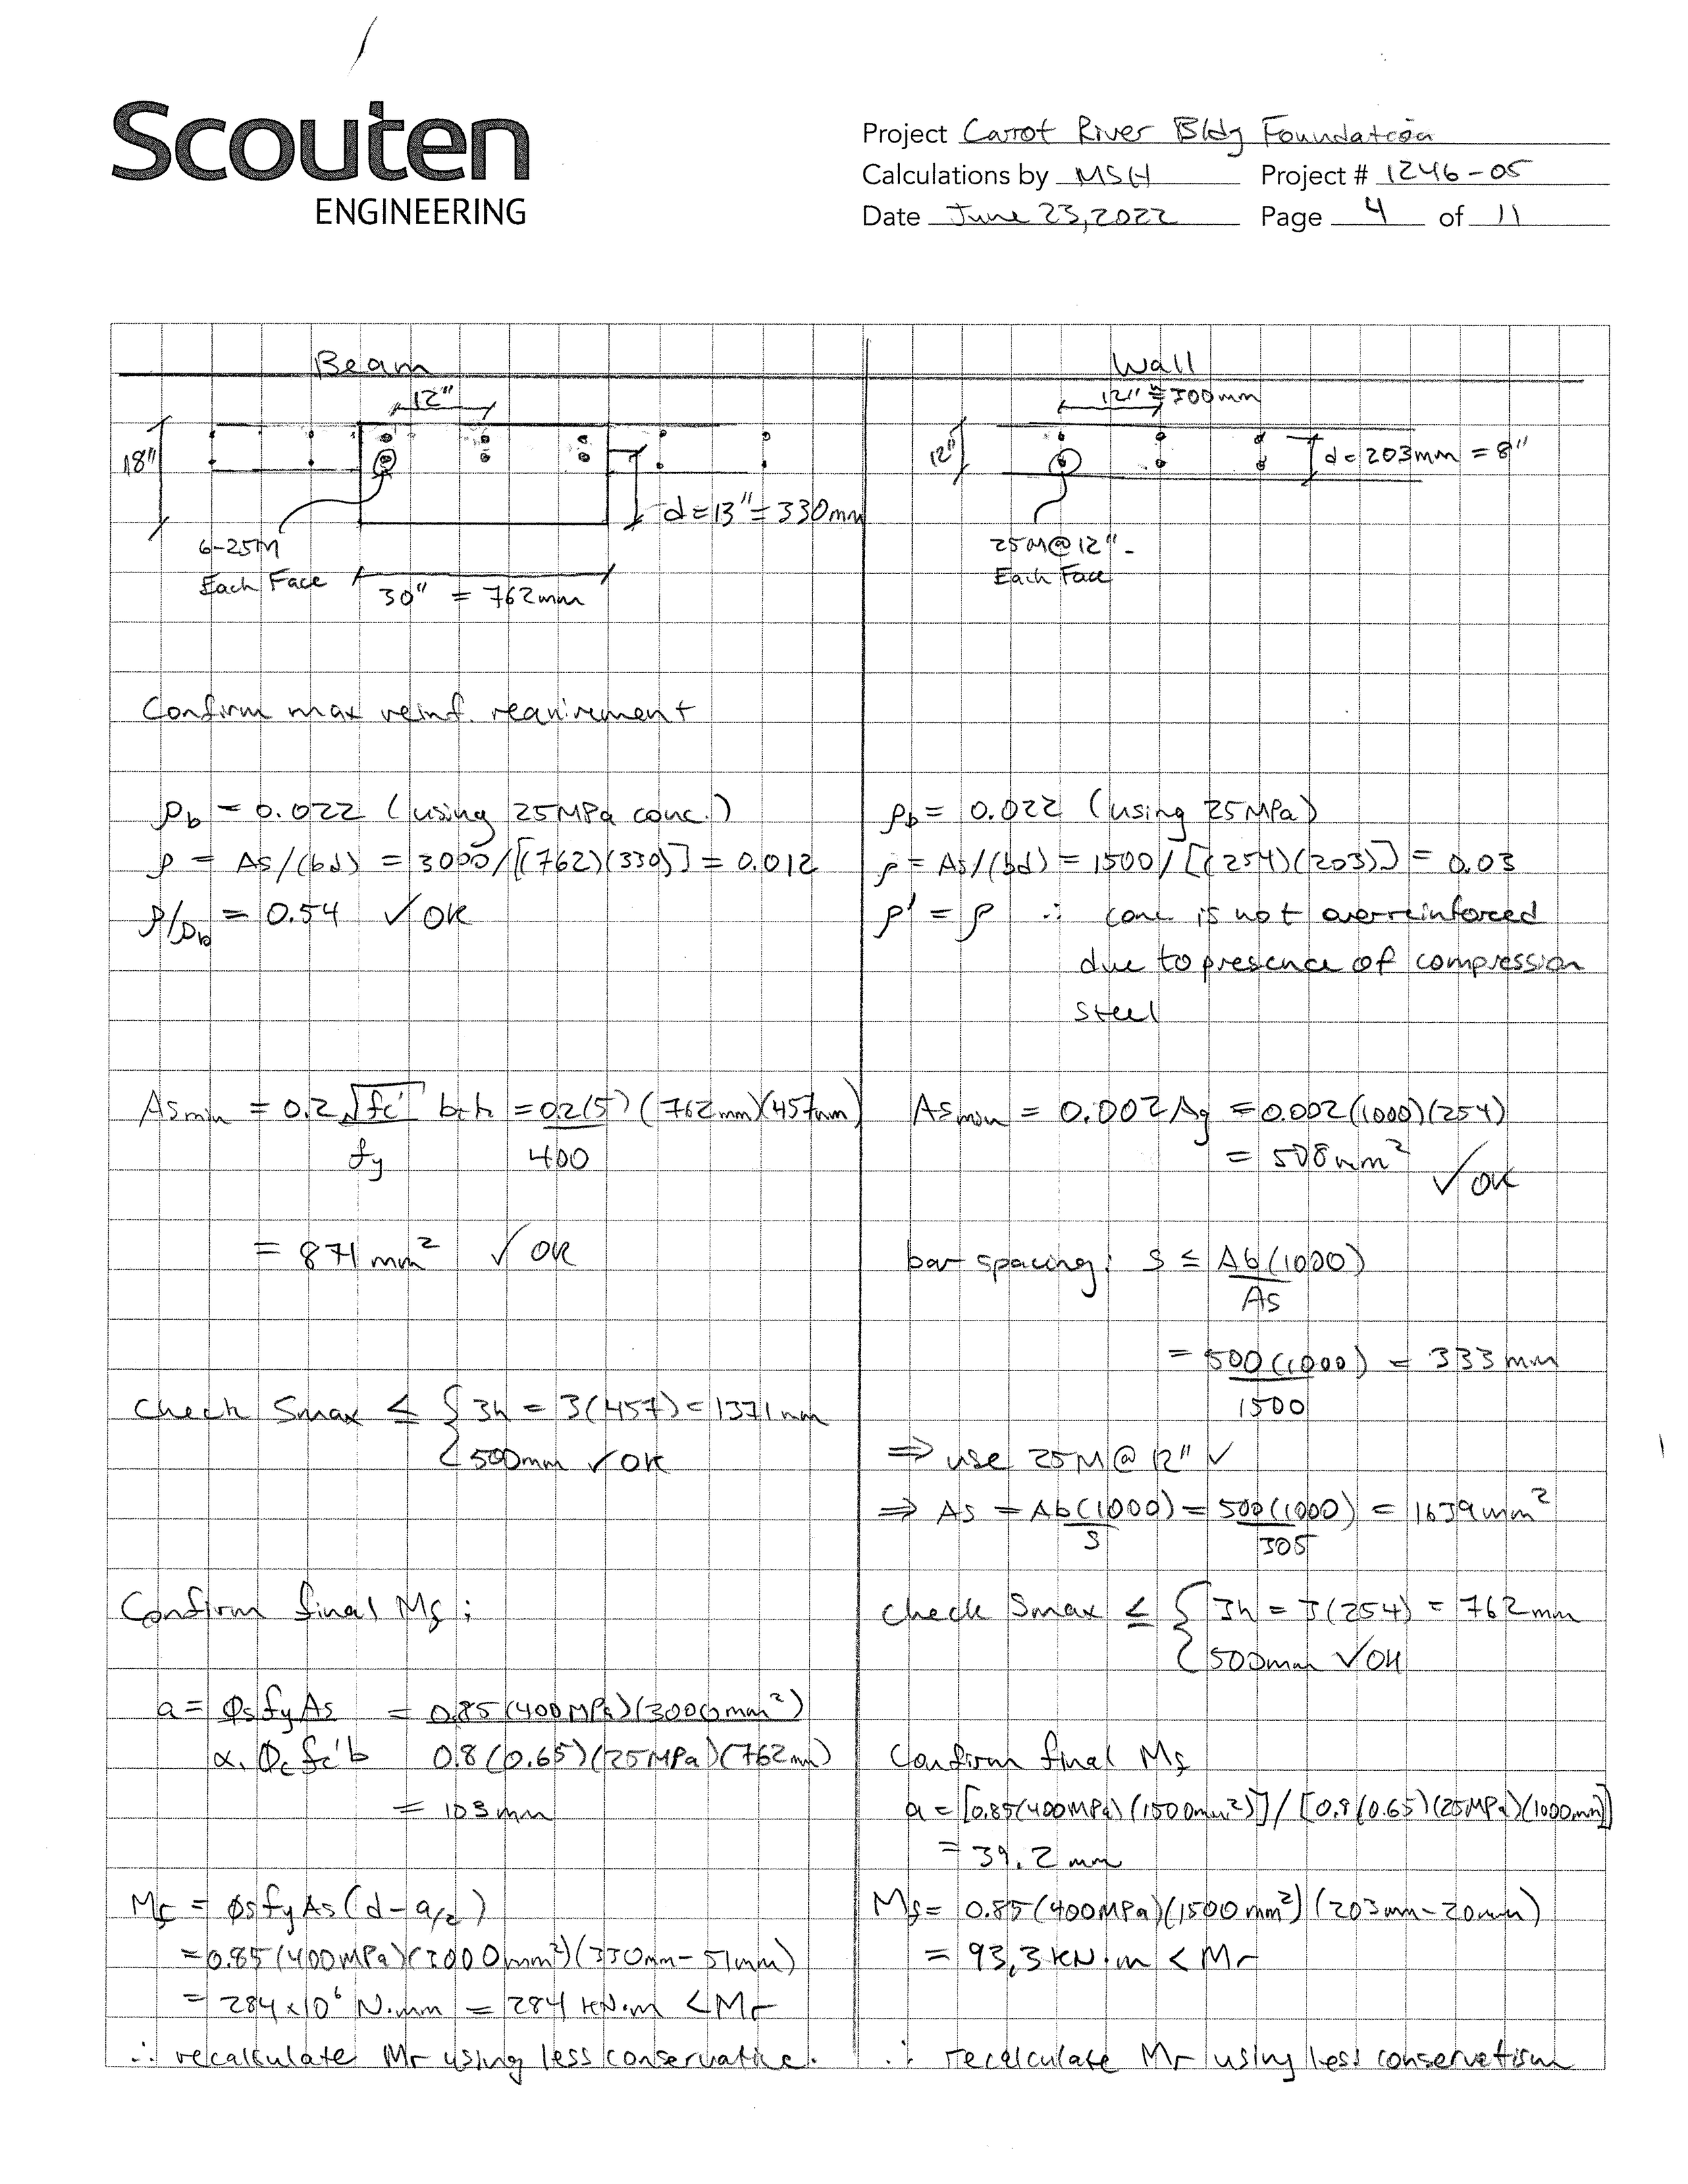 Scouten
ENGINEERING
Project Carrot River Bldg Foundation
Calculations by MSH Project # 1246-05
Date June 23, 2022 Page 4 of 11
Beam
12"
18"
d = 13" = 330mm
6-25M
Each Face
30" = 762mm
Confirm max reinf. requirement
ρb = 0.022 (using 25MPa conc.)
ρ = As/(bd) = 3000/[(762)(330)] = 0.012
ρ/ρb = 0.54 ✓ OK
Asmin = 0.2√fc' bth = 0.2(5) (762mm)(457mm)
fy 400
= 871 mm² ✓ OK
Check Smax ≤ { 3h = 3(457) = 1371mm
500mm ✓ OK
Confirm final Mf:
a = ϕsfyAs = 0.85(400MPa)(3000mm²)
α1 ϕc fc' b 0.8(0.65)(25MPa)(762mm)
= 103mm
Mf = ϕsfyAs(d - a/2)
= 0.85(400MPa)(3000mm²)(330mm - 51mm)
= 284x10⁶ N·mm = 284 kN·m < Mr
∴ recalculate Mr using less conservative.
Wall
12" = 300mm
12"
d = 203mm = 8"
25M@12" -
Each Face
ρb = 0.022 (using 25MPa)
ρ = As/(bd) = 1500/[(254)(203)] = 0.03
ρ' = ρ ∴ conc is not overreinforced
due to presence of compression
steel
Asmin = 0.002Ag = 0.002(1000)(254)
= 508mm² ✓ OK
bar spacing: S ≤ Ab(1000)
As
= 500(1000) = 333mm
1500
⇒ use 25M@12" ✓
⇒ As = Ab(1000) = 500(1000) = 1639mm²
S 305
Check Smax ≤ { 3h = 3(254) = 762mm
500mm ✓ OK
Confirm final Mf
a = [0.85(400MPa)(1500mm²)] / [0.8(0.65)(25MPa)(1000mm)]
= 39.2mm
Mf = 0.85(400MPa)(1500mm²)(203mm - 20mm)
= 93.3 kN·m < Mr
∴ recalculate Mr using less conservatism